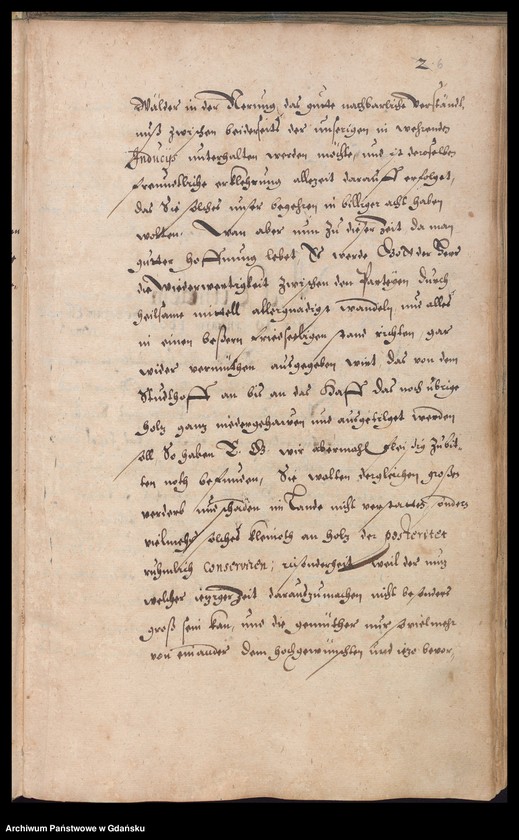 2
Wälder in der Nerung, das gutte nachbarliche Verständt-
nuß zwischen beiderseits der unserigen in wehrenden
Inducijs unterhalten werden möchte, und ist deroselben
freundtliche erklehrung allezeit darauff erfolget,
das Sie solches unser begehren in billiger acht haben
wolten. Wan aber nun zu dieser Zeit da man
gutter hoffnung lebet Es werde Gott der Herr
die Wiederwertigkeit zwischen den Parteyen durch
heilsame mittell allergnädigst wandeln und alles
in einen bessern friedseeligen stand richten, gar
wider vermuthen ausgegeben wirt, das von dem
Stutthoff an bis an das Haff das noch ubrige
holtz gantz niedergehawen und ausgetilget werden
soll So haben E. G. wir abermahl fleissig zu bit-
ten noth befunden, Sie wolten dergleichen grossen
verderb und schaden im Lande nicht verstatten, sondern
vielmehr solches kleinoth an holtz der posteritet
ruhmlich conserviren; insonderheit weil der nutz
welcher itziger Zeit darauszumachen nicht besonders
groß sein kan, und die gemüther nur so vielmehr
von einander dem hochgewünschten und itzo bevor-
Archiwum Państwowe w Gdańsku